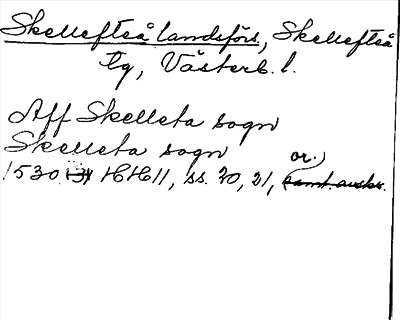 Skellefteå landsförs, Skellefteå
tg, Västerb. l.
Aff Skelleta sogn
Skelleta sogn
or.)
1530 HH 11, ss. 20, 21, samt. avskr.